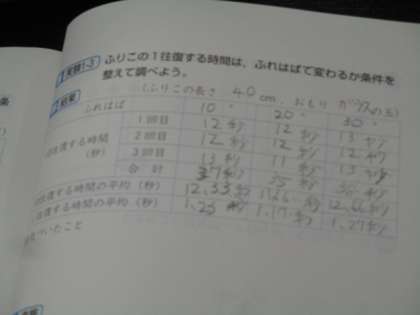 実験1-3 ふりこの1往復する時間は、ふれはばで変わるか条件を
整えて調べよう。
結果 (ふりこの長さ 40 cm、おもり ガラスの玉)
ふれはば 10° 20° 30°
1回目 12秒 12秒 13秒
往復する時間 2回目 12秒 12秒 12秒
(秒) 3回目 13秒 11秒 13秒
合計 37秒 35秒
往復する時間の平均(秒) 12.33秒 12.66秒
往復する時間の平均(秒) 1.23秒 1.17秒 1.27秒
いたこと